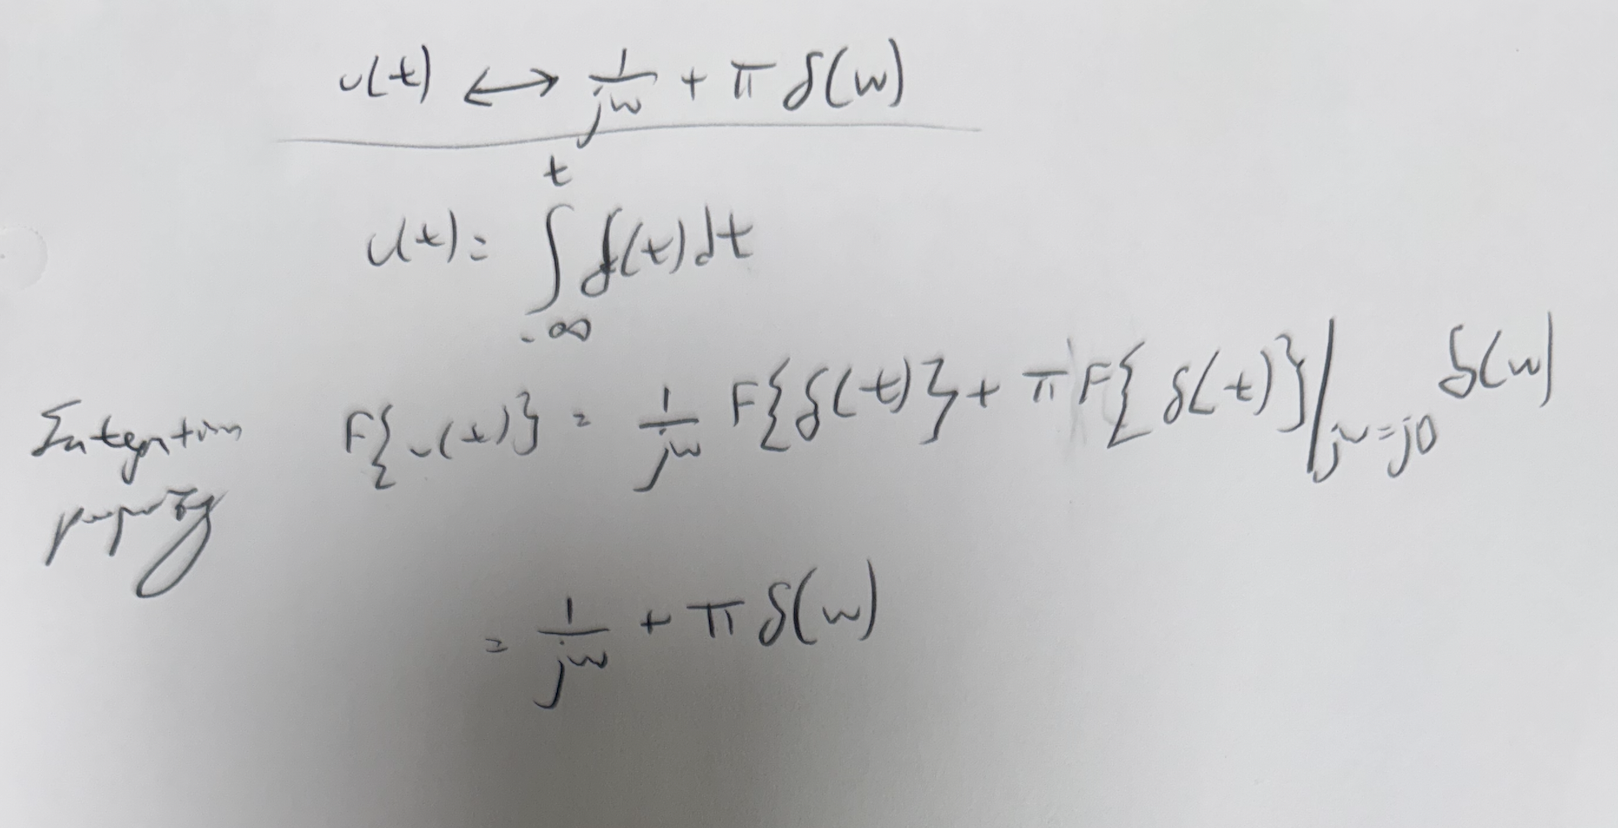 u(t) ↔ 1/jw + π δ(w)
u(t) = ∫_{-∞}^{t} δ(t) dt
Integration property F{u(t)} = 1/jw F{δ(t)} + π F{δ(t)}|_{jw=j0} δ(w)
= 1/jw + π δ(w)